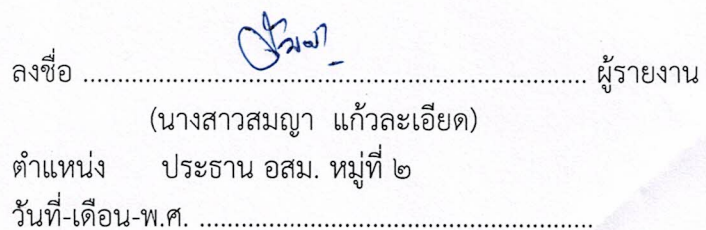 ลงชื่อ ........................................................................... ผู้รายงาน
(นางสาวสมญา แก้วละเอียด)
ตำแหน่ง ประธาน อสม. หมู่ที่ ๒
วันที่-เดือน-พ.ศ. ...........................................................